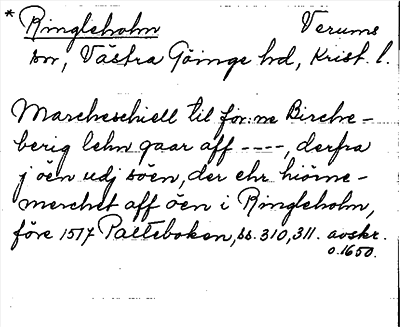 * Ringleholm Verums
sn, Västra Göinge hd, Krist. l.
Marcheschiell til for:ne Birche-
berig lehn gaar aff ----, derfra
j öen udj söen, der ehr hiörne-
merchet aff öen i Ringleholm,
före 1517 Palteboken, ss. 310, 311. avskr.
o. 1650.